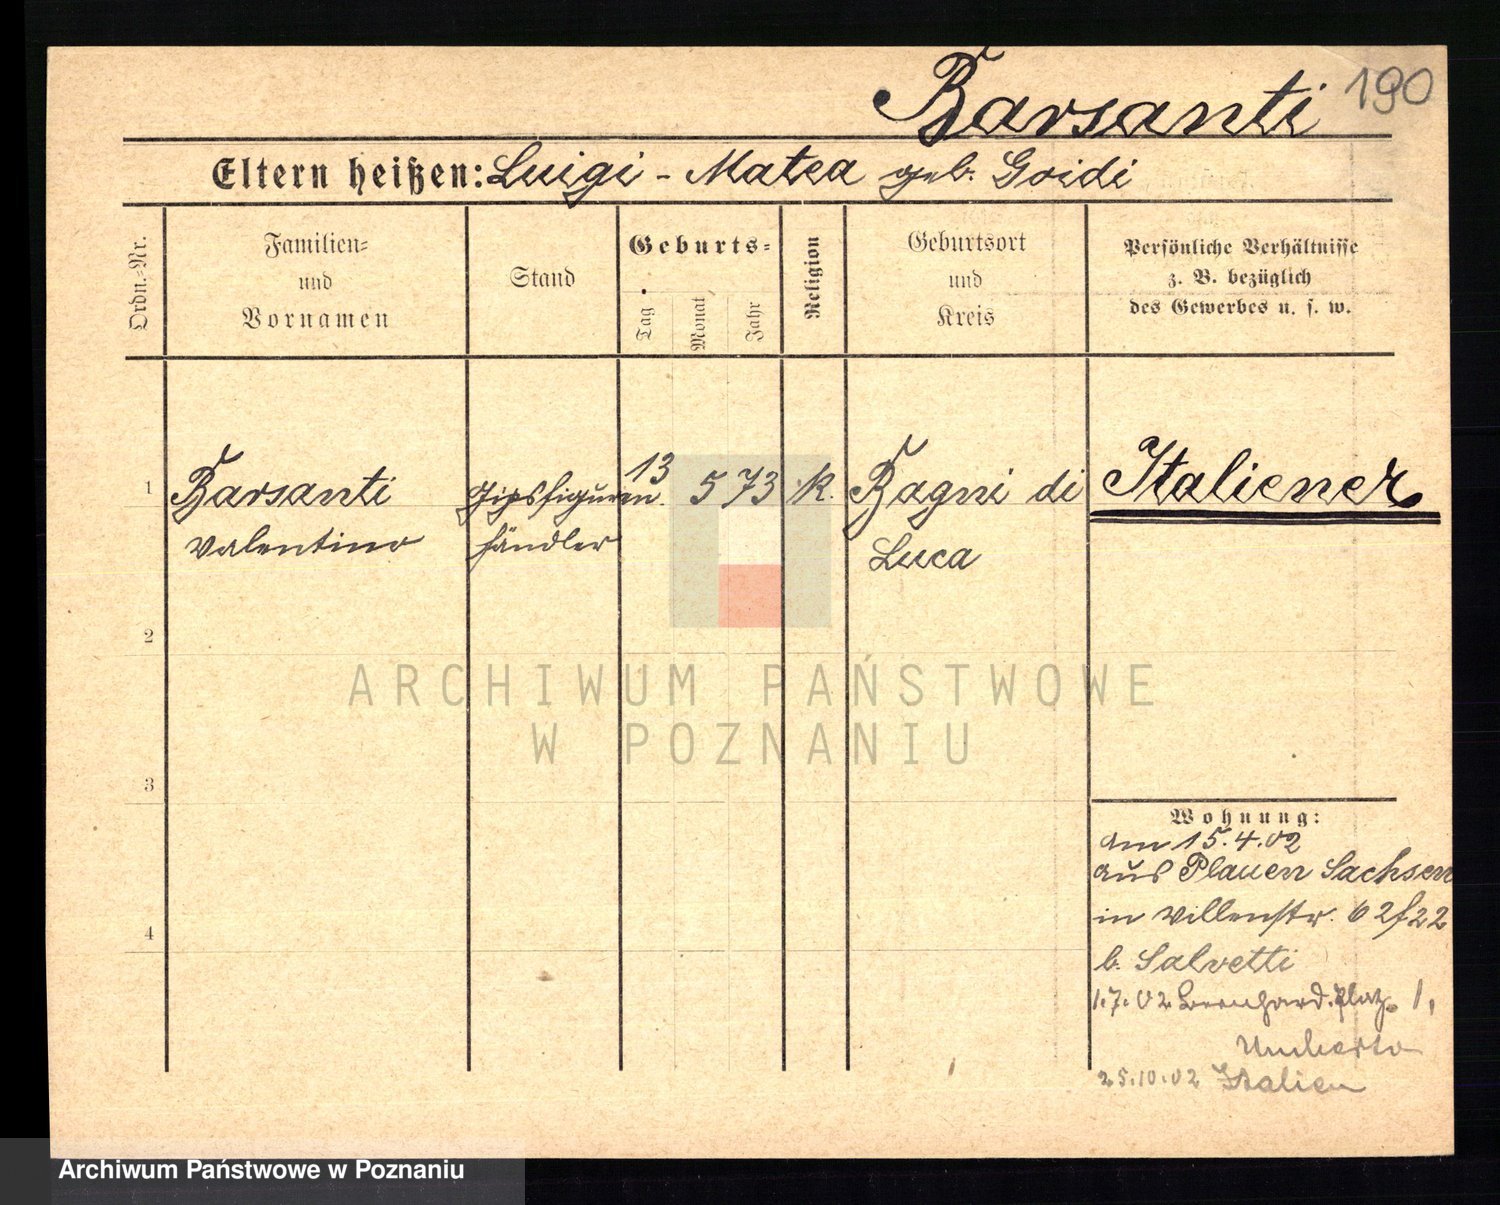 Barsanti 190
Eltern heißen: Luigi - Matea geb. Goidi
Ordn.-Nr.
Familien-
und
Vornamen
Stand
Geburts-
Tag
Monat
Jahr
Religion
Geburtsort
und
Kreis
Persönliche Verhältnisse
z. B. bezüglich
des Gewerbes u. s. w.
1 Barsanti Gipsfiguren 13 5 73 k. Bagni di Italiener
Valentino händler Luca
2
3
4
Wohnung:
am 15.4.02
aus Plauen Sachsen
in Villenstr. 6
b. Salvetti
1.7.02 Bernhard. Platz. 1,
Umberto
25.10.02 Italien
ARCHIWUM PAŃSTWOWE
W POZNANIU
Archiwum Państwowe w Poznaniu